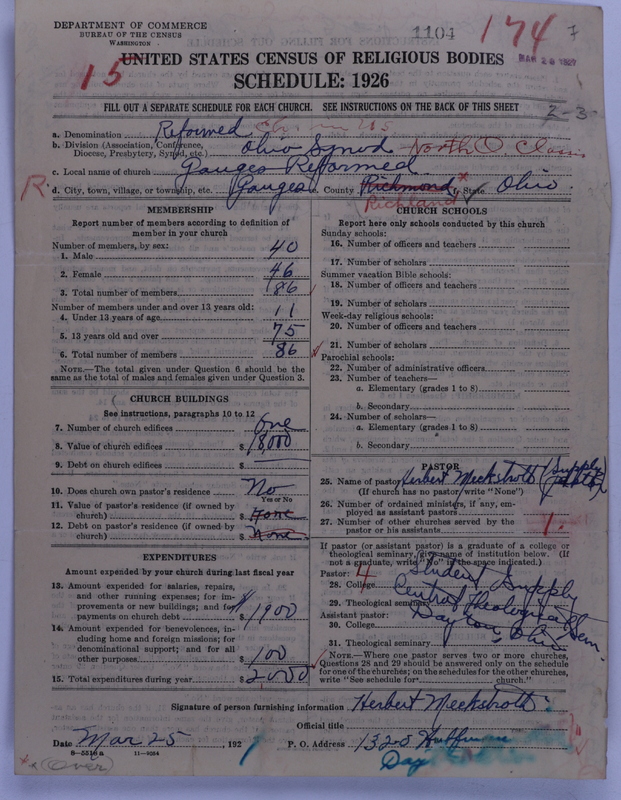 DEPARTMENT OF COMMERCE
BUREAU OF THE CENSUS
WASHINGTON
1104 174 7
MAR 29 1927
15
UNITED STATES CENSUS OF RELIGIOUS BODIES
SCHEDULE: 1926
FILL OUT A SEPARATE SCHEDULE FOR EACH CHURCH. SEE INSTRUCTIONS ON THE BACK OF THIS SHEET
2-3
a. Denomination Reformed Ch in US
b. Division (Association, Conference, Diocese, Presbytery, Synod, etc.) Ohio Synod North O Classis
c. Local name of church Ganges Reformed
R d. City, town, village, or township, etc. Ganges County Richmond * State Ohio
Richland
MEMBERSHIP
Report number of members according to definition of member in your church
Number of members, by sex:
1. Male 40
2. Female 46
3. Total number of members 86
Number of members under and over 13 years old:
4. Under 13 years of age 11
5. 13 years old and over 75
6. Total number of members 86
NOTE.—The total given under Question 6 should be the same as the total of males and females given under Question 3.
CHURCH BUILDINGS
See instructions, paragraphs 10 to 12
7. Number of church edifices One
8. Value of church edifices $ 18,000
9. Debt on church edifices $ —
10. Does church own pastor's residence No
Yes or No
11. Value of pastor's residence (if owned by church) $ None
12. Debt on pastor's residence (if owned by church) $ None
EXPENDITURES
Amount expended by your church during last fiscal year
13. Amount expended for salaries, repairs, and other running expenses; for improvements or new buildings; and for payments on church debt $ 1900
14. Amount expended for benevolences, including home and foreign missions; for denominational support; and for all other purposes $ 100
15. Total expenditures during year $ 2000
CHURCH SCHOOLS
Report here only schools conducted by this church
Sunday schools:
16. Number of officers and teachers
17. Number of scholars
Summer vacation Bible schools:
18. Number of officers and teachers
19. Number of scholars
Week-day religious schools:
20. Number of officers and teachers
21. Number of scholars
Parochial schools:
22. Number of administrative officers
23. Number of teachers—
a. Elementary (grades 1 to 8)
b. Secondary
24. Number of scholars—
a. Elementary (grades 1 to 8)
b. Secondary
PASTOR
25. Name of pastor Herbert Meckstroth (Supply
(If church has no pastor, write "None")
26. Number of ordained ministers, if any, employed as assistant pastors
27. Number of other churches served by the pastor or his assistants 1.
If pastor (or assistant pastor) is a graduate of a college or theological seminary, give name of institution below. (If not a graduate, write "No" in the space indicated.)
Pastor: 4
28. College Student Supply
29. Theological seminary Central Theological Sem.
Assistant pastor: Dayton, Ohio
30. College
31. Theological seminary
NOTE.—Where one pastor serves two or more churches, Questions 28 and 29 should be answered only on the schedule for one of the churches; on the schedules for the other churches, write "See schedule for church."
Signature of person furnishing information Herbert Meckstroth
Official title
Date Mar 25, 1927
P. O. Address 1320 Huffman
8—5516a 11—9054
* (Over)